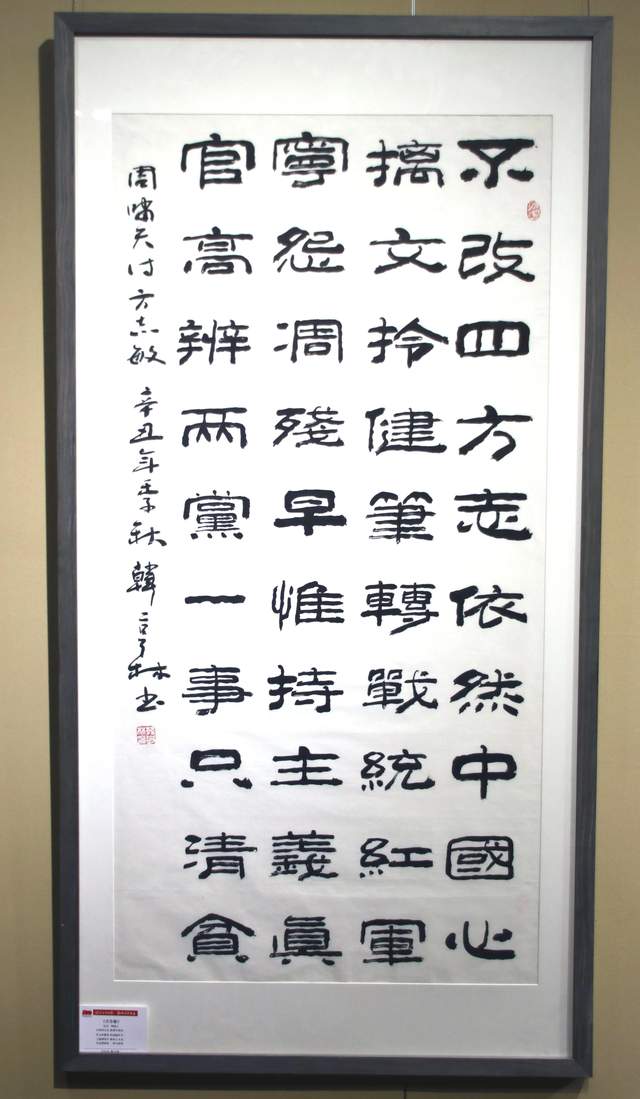 不改四方志依然中國心
摛文拎健筆轉戰統紅軍
寧怨凋殘早惟持主義真
官高辨兩黨一事只清貧
周啸天诗方志敏 辛丑年季秋 韓亨林书